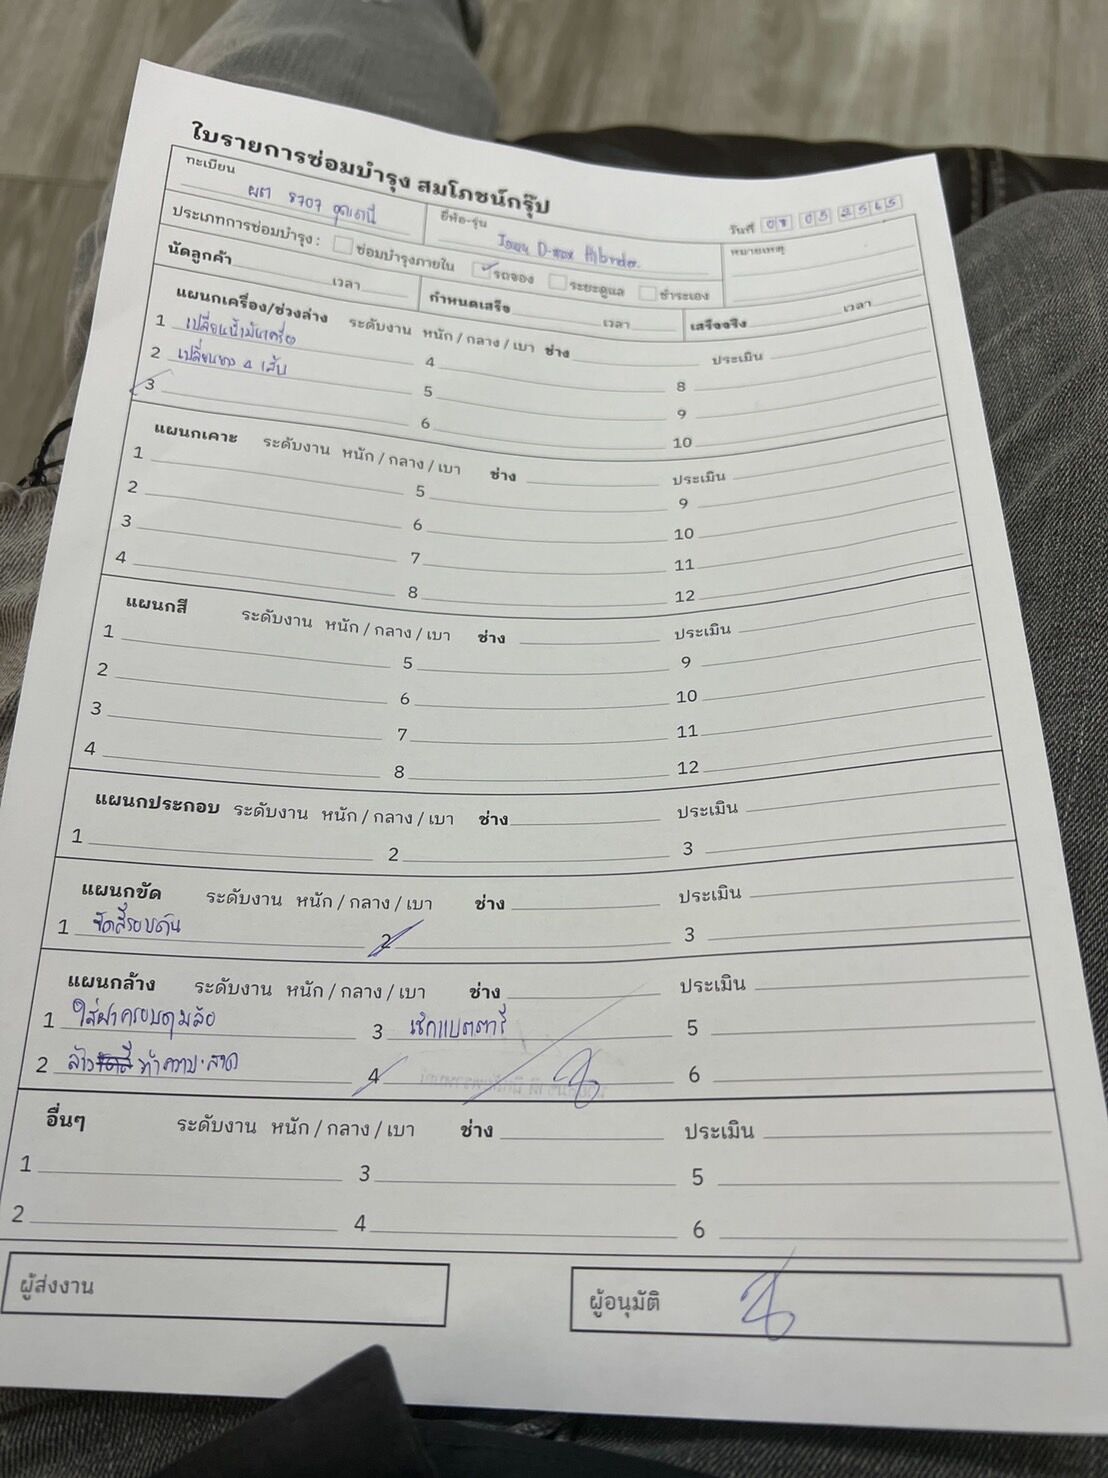 ใบรายการซ่อมบำรุง สมโภชน์กรุ๊ป
วันที่ 08 05 2565
ทะเบียน ผต 8707 อุดรธานี ยี่ห้อ-รุ่น Isuzu D-max หมายเหตุ
ประเภทการซ่อมบำรุง : ซ่อมบำรุงภายใน รถจอง ระยะดูแล ชำระเอง
นัดลูกค้า เวลา กำหนดเสร็จ เวลา เสร็จจริง เวลา
แผนกเครื่อง/ช่วงล่าง ระดับงาน หนัก / กลาง / เบา ช่าง ประเมิน
1 เปลี่ยนน้ำมันเครื่อง 4 8
2 เปลี่ยนยาง 4 เส้น 5 9
3 6 10
แผนกเคาะ ระดับงาน หนัก / กลาง / เบา ช่าง ประเมิน
1 5 9
2 6 10
3 7 11
4 8 12
แผนกสี ระดับงาน หนัก / กลาง / เบา ช่าง ประเมิน
1 5 9
2 6 10
3 7 11
4 8 12
แผนกประกอบ ระดับงาน หนัก / กลาง / เบา ช่าง ประเมิน
1 2 3
แผนกขัด ระดับงาน หนัก / กลาง / เบา ช่าง ประเมิน
1 ขัดสีรอบคัน 2 3
แผนกล้าง ระดับงาน หนัก / กลาง / เบา ช่าง ประเมิน
1 ใส่ฝาครอบดุมล้อ 3 เช็กแบตตารี่ 5
2 ล้าง ทำความ.สอาด 4 6
อื่นๆ ระดับงาน หนัก / กลาง / เบา ช่าง ประเมิน
1 3 5
2 4 6
ผู้ส่งงาน ผู้อนุมัติ